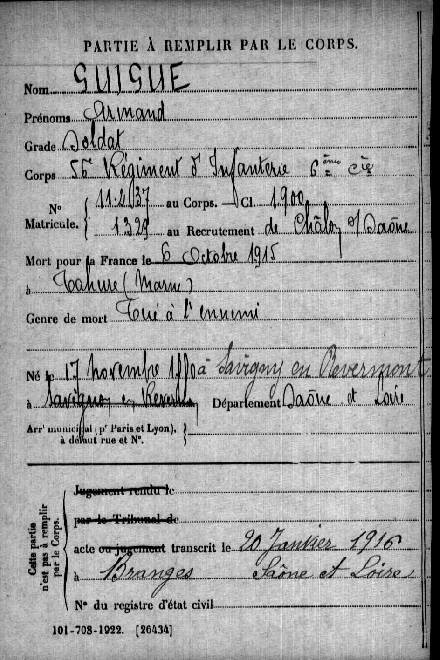 PARTIE À REMPLIR PAR LE CORPS.
Nom GUIGUE
Prénoms Armand
Grade Soldat
Corps 56 Régiment d'Infanterie 6ème Cie
N° Matricule. { 11.267 au Corps. – Cl. 1900
1329 au Recrutement de Châlon s/ Saône
Mort pour la France le 6 Octobre 1915
à Tahure (Marne)
Genre de mort Tué à l'ennemi
Né le 17 novembre 1880 à Savigny en Revermont
à Savigny en Reverm Département Saône et Loire
Arrt municipal (pr Paris et Lyon),
à défaut rue et N°.
Cette partie n'est pas à remplir par le Corps.
Jugement rendu le
par le Tribunal de
acte ou jugement transcrit le 20 Janvier 1916
à Branges Saône et Loire
N° du registre d'état civil
101-708-1922. [26434]